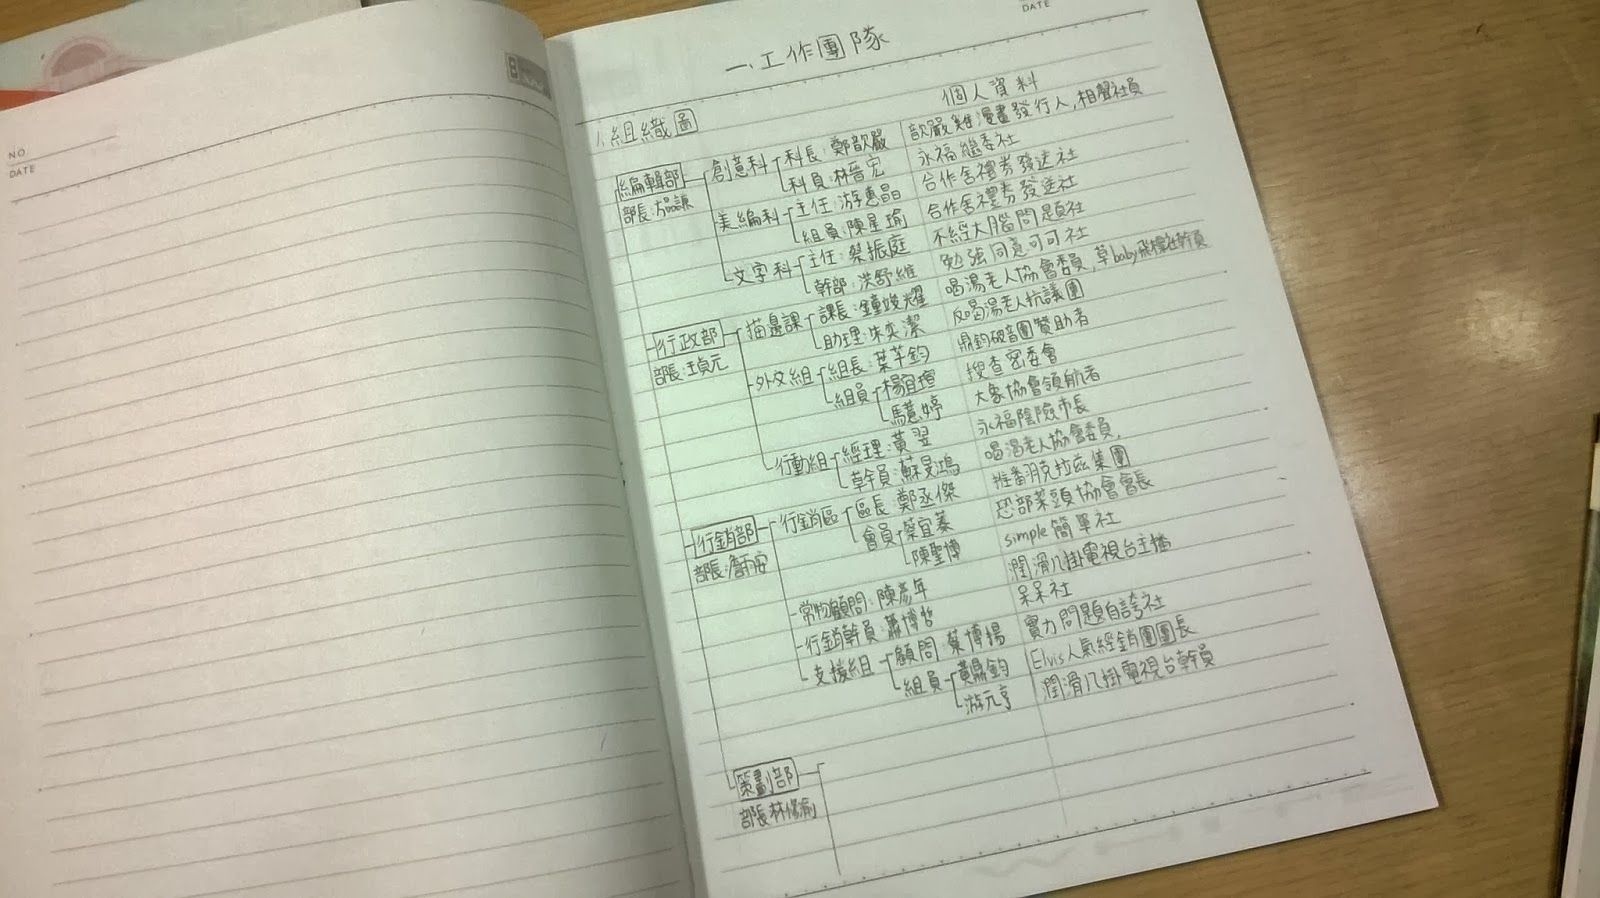 NO.
DATE
DATE
一、工作團隊
1.組織圖 個人資料
編輯部 創意科 科長:鄭歆嚴 歆嚴雜漫畫發行人,相聲社員
部長: 科員:林晉宏 永福繼委社
美編科 主任:游惠晶 合作舍禮券發送社
組員:陳星瑜 合作舍禮券發送社
文字科 主任:蔡振庭 不經大腦問題社
幹部:洪舒維 勉強同意可可社
行政部 描邊課 課長:鐘竣耀 喝湯老人協會委員,草baby飛標社幹員
部長:王貞元 助理:朱奕潔 反喝湯老人抗議團
外交組 組長:葉芊鈞 鼎鈞破音團贊助者
組員 搜查密委會
馬薏婷 大象協會領航者
行動組 經理:黃翌 永福陰險市長
幹員:蘇旻鴻 喝湯老人協會委員,
行銷部 行銷區 區長 鄭丞傑 推番羽克拉茲集團
部長: 會員 蔡宜蓁 恐部菜頭協會會長
陳聖博 simple簡單社
常物顧問:陳彥年 潤滑八掛電視台主播
行銷幹員 蕭博哲 呆呆社
支援組 顧問 葉博揚 實力問題自誇社
組員 黃鼎鈞 Elvis人氣經銷團團長
游元亨 潤滑八掛電視台幹員
策劃部
部長 林